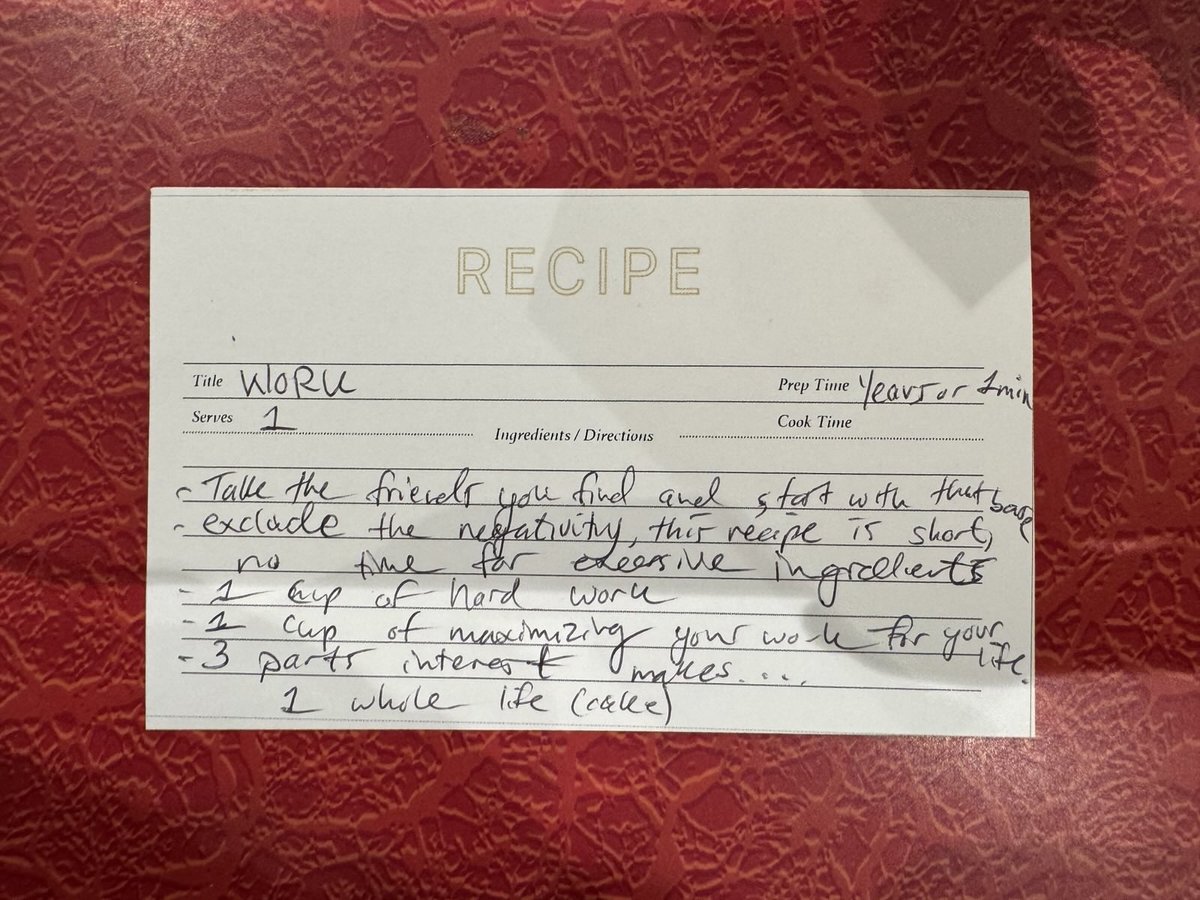 RECIPE
Title WORK
Prep Time Years or 1min
Serves 1
Cook Time
Ingredients / Directions
- Take the friends you find and start with that base
- exclude the negativity, this recipe is short,
no time for excessive ingredients
- 1 cup of hard work
- 1 cup of maximizing your work for your life.
- 3 parts interest makes....
1 whole life (cake)